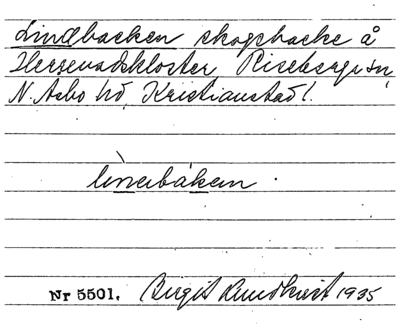 Lindbacken skogsbacke å
Herrevadskloster Riseberga sn,
N. Asbo hd, Kristianstad l.
Nr 5501. Birgit Lundkvist 1935